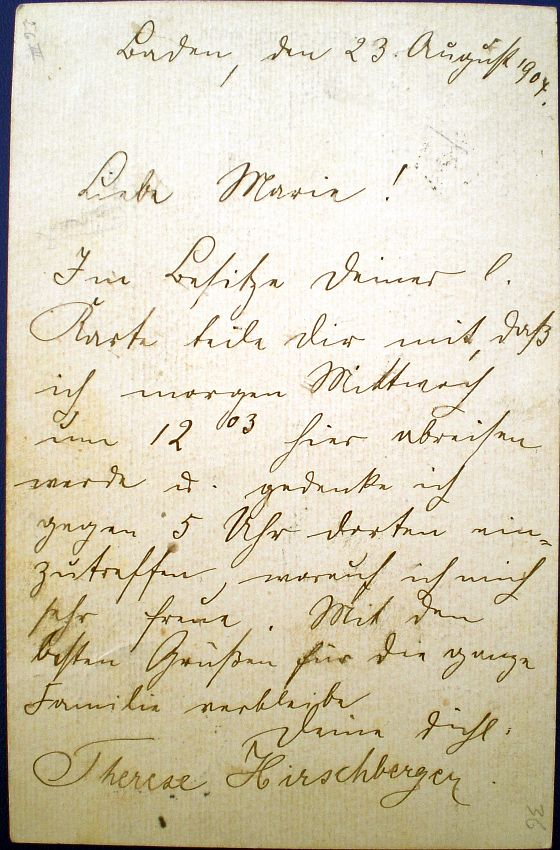 Baden, den 23. August 1904.
Liebe Marie!
Im Besitze Deiner l.
Karte teile Dir mit, daß
ich morgen Mittwoch
um 12 03 hier abreisen
werde u. gedenke ich
gegen 5 Uhr dorten ein=
zutreffen, worauf ich mich
sehr freue. Mit den
besten Grüßen für die ganze
Familie verbleibe
Deine Dichl.
Therese Hirschberger.
36